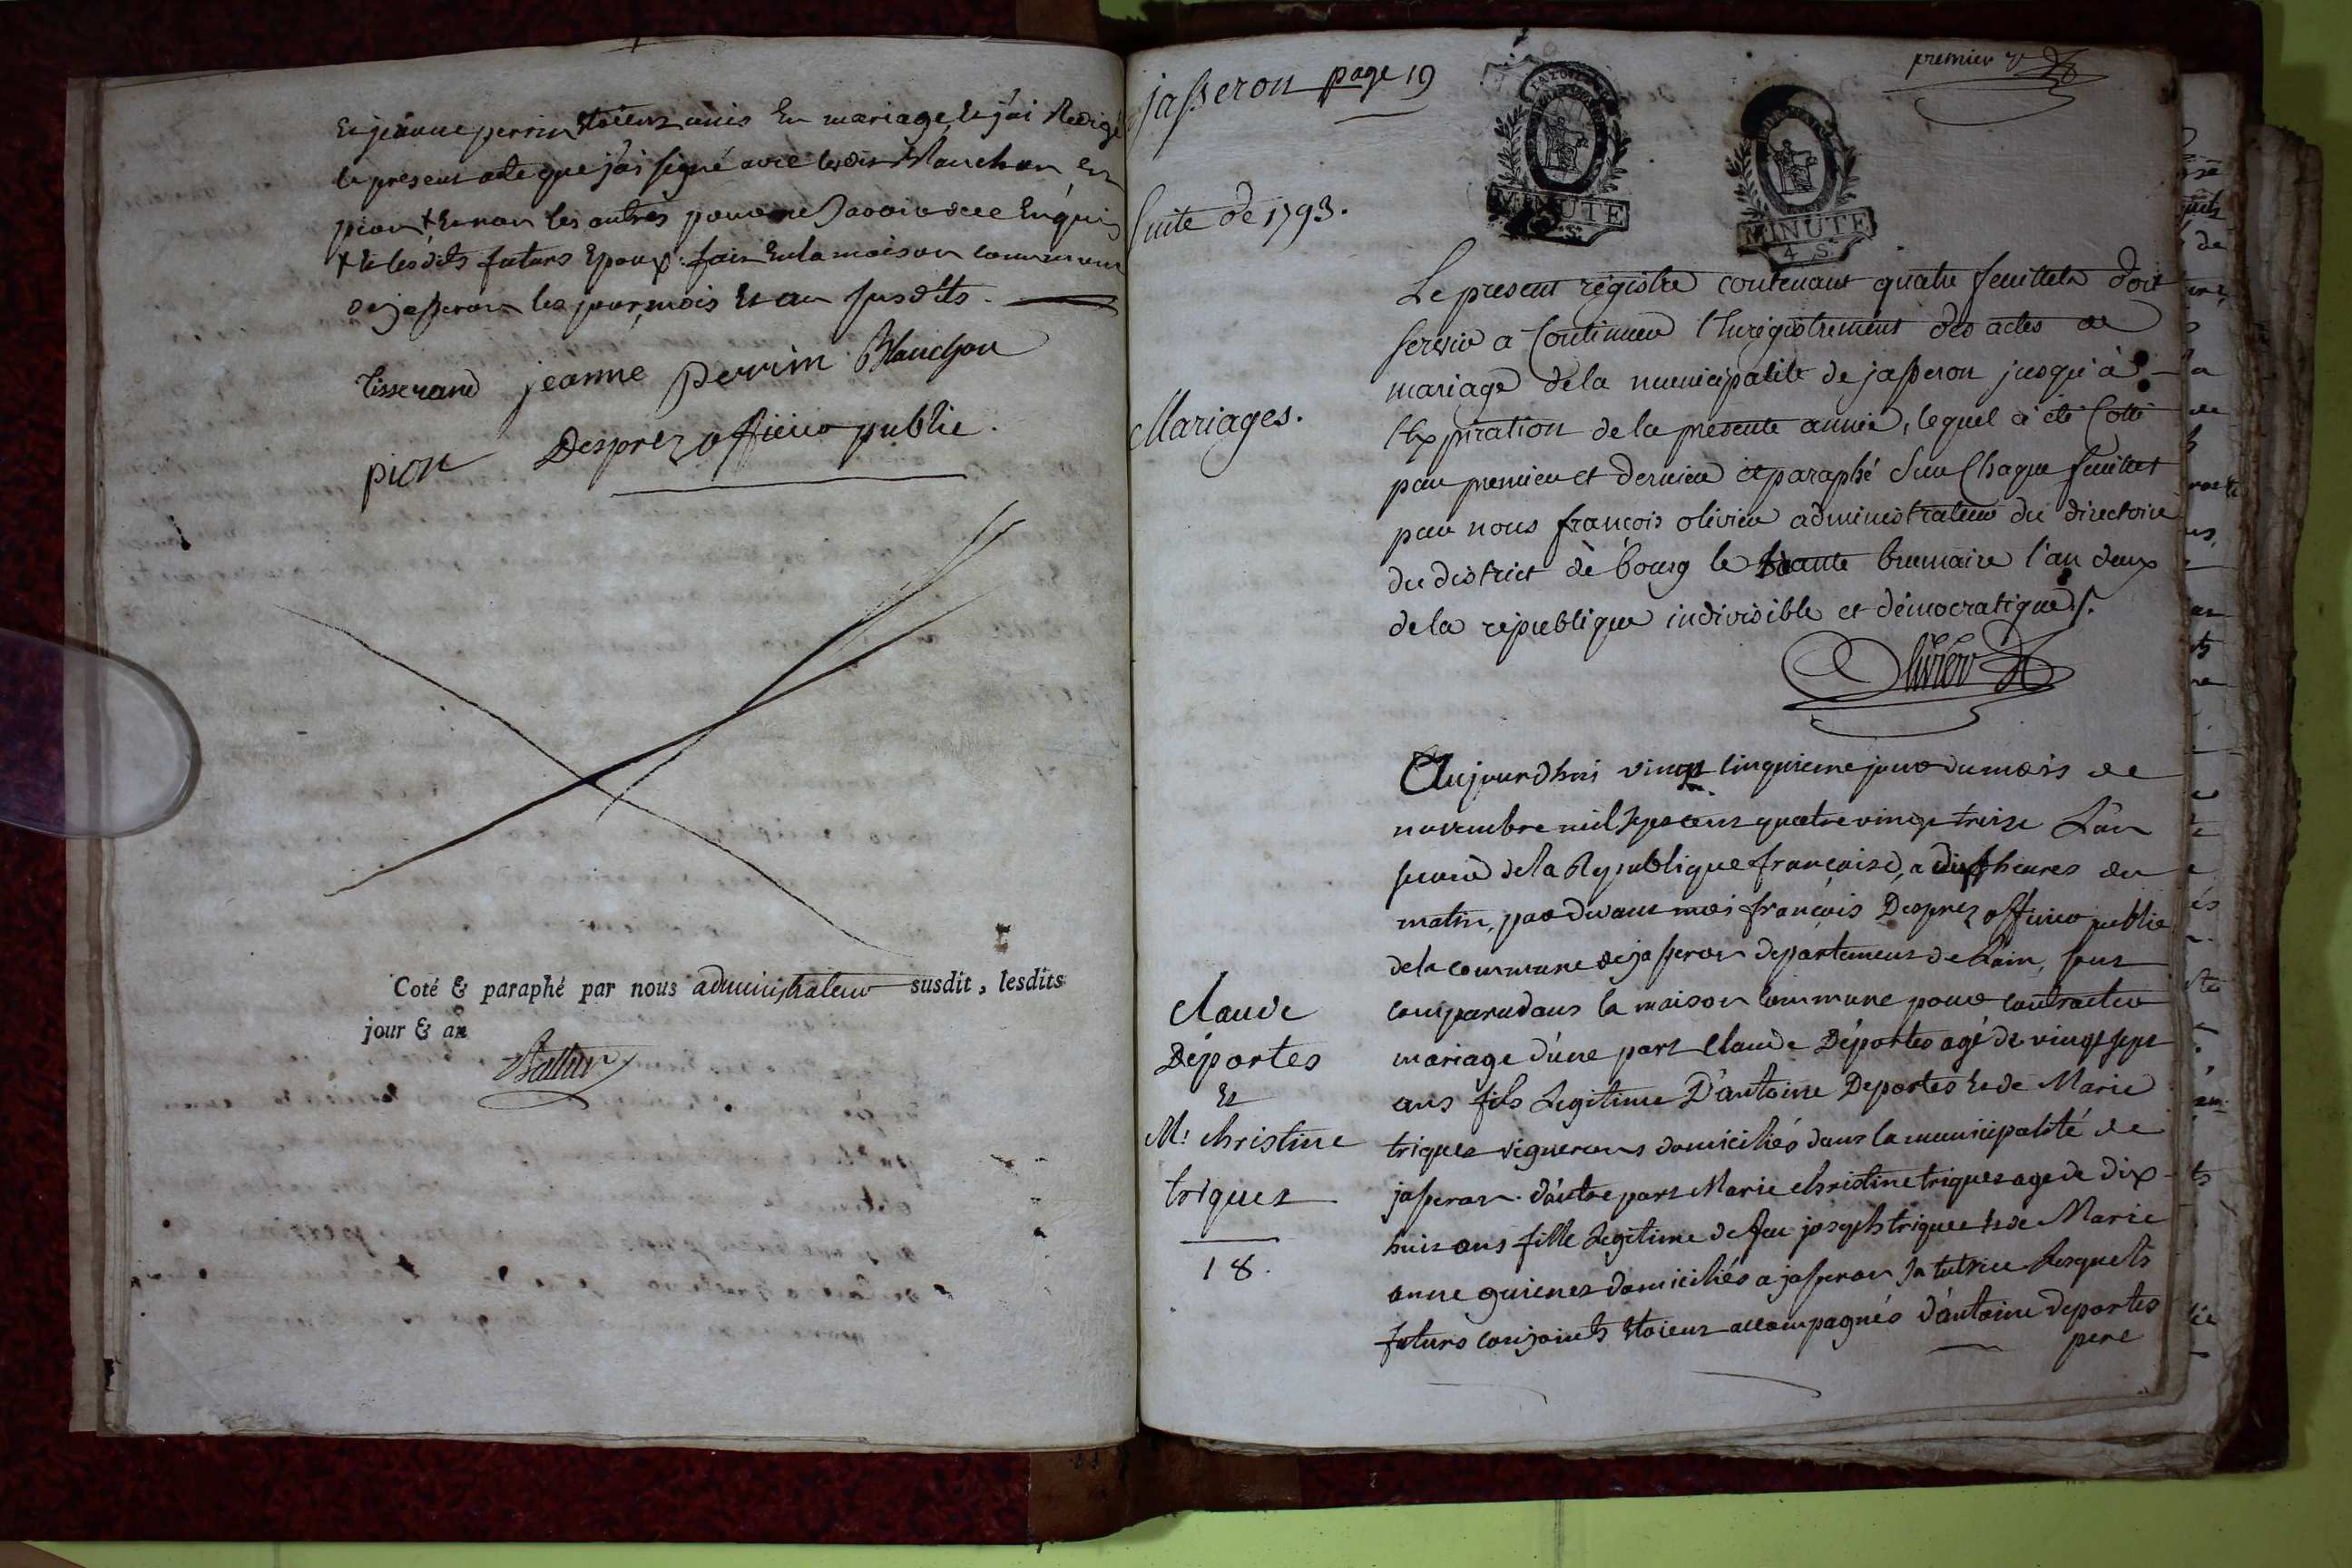 Et jeanne perrin Etoient unis En mariage, Et j'ai Redigé
le present acte que j'ai signé avec lesdits Blanchon Et
pion + Et non les autres pour ne Savoir de ce Enquis
+ Et lesdits futurs Epoux. fait En la maison commune
de jasseron les jour, mois Et an susdits.
tisserand jeanne perrin Blanchon
pion Desprez officier public.
Coté & paraphé par nous administrateur susdit, lesdits
jour & an
jasseron page 19
premier
Suite de 1793.
MINUTE
MINUTE
4 S.
Mariages.
Le present régistre contenant quatre feuillets doit
servir a Continuer l'Enrégistrement des actes de
mariage de la municipalité de jasseron jusqu'à
l'Expiration de la presente année, lequel a été Cotté
par premier et dernier et paraphé Sur Chaque feuillet
par nous françois olivier administrateur du directoire
du district de bourg le trante brumaire l'an deux
de la république indivisible et démocratique /.
Olivier
Claude
Déportes
Et
M. Christine
triquet
18.
Aujourdhui vingt Cinquieme jour du mois de
novembre mil Sept cent quatre vingt treize L'an
second de la Republique française, a dix heures du
matin, par devant moi françois Desprez officier public
de la commune de jasseron departement de L'ain, sont
comparu dans la maison Commune pour contracter
mariage d'une part Claude Déportes agé de vingt sept
ans fils Legitime D'antoine Deportes Et de Marie
triquet vignerons domiciliés dans la municipalité de
jasseron. d'autre part Marie Christine triquet age de dix
huit ans fille Legitime de feu joseph triquet Et de Marie
anne guienet domiciliés a jasseron Sa tutrice Lesquels
futurs conjoints Etoient accompagnés d'antoine deportes
pere